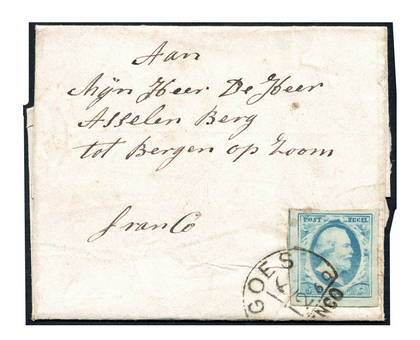 Aan
Mijn Heer De Heer
Asselen Berg
tot Bergen op Zoom
franco
POST ZEGEL
GOES